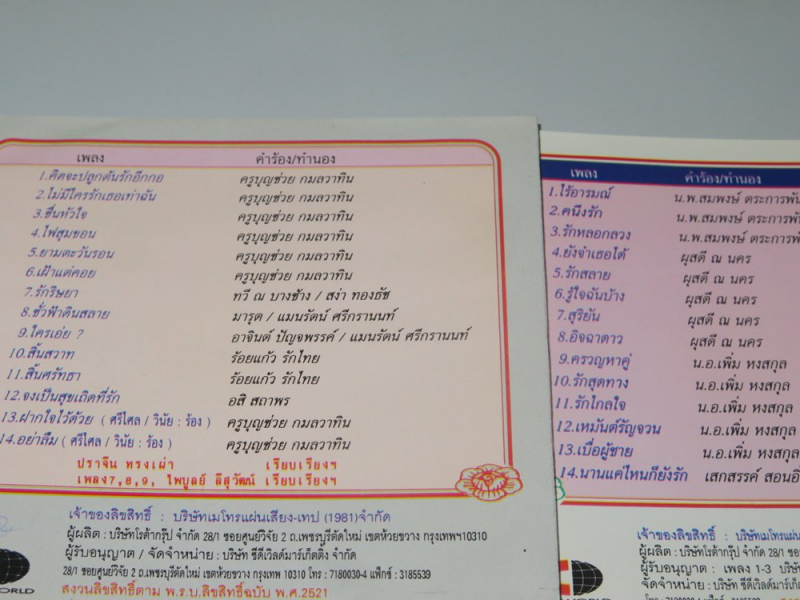 เพลง คำร้อง/ทำนอง
1.คิดจะปลูกต้นรักอีกกอ ครูบุญช่วย กมลวาทิน
2.ไม่มีใครรักเธอเท่าฉัน ครูบุญช่วย กมลวาทิน
3.ชื่นหัวใจ ครูบุญช่วย กมลวาทิน
4.ไฟสุมขอน ครูบุญช่วย กมลวาทิน
5.ยามตะวันรอน ครูบุญช่วย กมลวาทิน
6.เฝ้าแต่คอย ครูบุญช่วย กมลวาทิน
7.รักริษยา ทวี ณ บางช้าง / สง่า ทองธัช
8.ชั่วฟ้าดินสลาย มารุต / แมนรัตน์ ศรีกรานนท์
9.ใครเอ่ย ? อาจินต์ ปัญจพรรค์ / แมนรัตน์ ศรีกรานนท์
10.สิ้นสวาท ร้อยแก้ว รักไทย
11.สิ้นศรัทธา ร้อยแก้ว รักไทย
12.จงเป็นสุขเถิดที่รัก อสิ สถาพร
13.ฝากใจไว้ด้วย ( ศรีไศล / วินัย : ร้อง ) ครูบุญช่วย กมลวาทิน
14.อย่าลืม ( ศรีไศล / วินัย : ร้อง ) ครูบุญช่วย กมลวาทิน
ปราจีน ทรงเผ่า เรียบเรียงฯ
เพลง7,8,9, ไพบูลย์ ลีสุวัฒน์ เรียบเรียงฯ
เจ้าของลิขสิทธิ์ : บริษัทเมโทรแผ่นเสียง-เทป (1981)จำกัด
ผู้ผลิต : บริษัทโรต้ากรุ๊ป จำกัด 28/1 ซอยศูนย์วิจัย 2 ถ.เพชรบุรีตัดใหม่ เขตห้วยขวาง กรุงเทพฯ10310
ผู้รับอนุญาต / จัดจำหน่าย : บริษัท ซีดีเวิลด์มาร์เก็ตติ้ง จำกัด
28/1 ซอยศูนย์วิจัย 2 ถ.เพชรบุรีตัดใหม่ เขตห้วยขวาง กรุงเทพ 10310 โทร : 7180030-4 แฟ็กซ์ : 3185539
สงวนลิขสิทธิ์ตาม พ.ร.บ.ลิขสิทธิ์ฉบับ พ.ศ.2521
ORLD
เพลง คำร้อง/ทำนอง
1.ไร้อารมณ์ น.พ.สมพงษ์ ตระการพัน
2.คนึงรัก น.พ.สมพงษ์ ตระการพั
3.รักหลอกลวง น.พ.สมพงษ์ ตระการพั
4.ยังจำเธอได้ ผุสดี ณ นคร
5.รักสลาย ผุสดี ณ นคร
6.รู้ใจฉันบ้าง ผุสดี ณ นคร
7.สุริยัน ผุสดี ณ นคร
8.อิจฉาดาว ผุสดี ณ นคร
9.ครวญหาคู่ น.อ.เพิ่ม หงสกุล
10.รักสุดทาง น.อ.เพิ่ม หงสกุล
11.รักไกลใจ น.อ.เพิ่ม หงสกุล
12.เหมันต์รัญจวน น.อ.เพิ่ม หงสกุ
13.เบื่อผู้ชาย น.อ.เพิ่ม หงสกุ
14.นานแค่ไหนก็ยังรัก เสกสรรค์ สอนอิ
เจ้าของลิขสิทธิ์ : บริษัทเมโทรแผ่น
ผู้ผลิต : บริษัทโรต้ากรุ๊ป จำกัด 28/1 ซอย
ผู้รับอนุญาต : เพลง 1-3 บริษั
จัดจำหน่าย : บริษัท ซีดีเวิลด์มาร์เก็ต